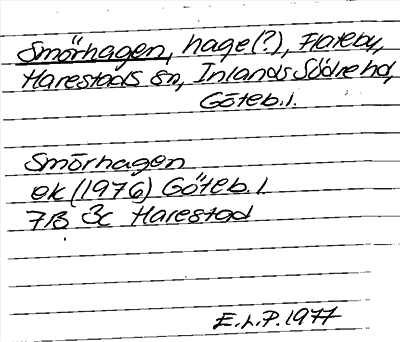 Smörhagen, hage (?), Flateby,
Harestads sn, Inlands Södre hd,
Göteb. l.
Smörhagen
ek (1976) Göteb. l.
7B 3c Harestad
E.L.P. 1977